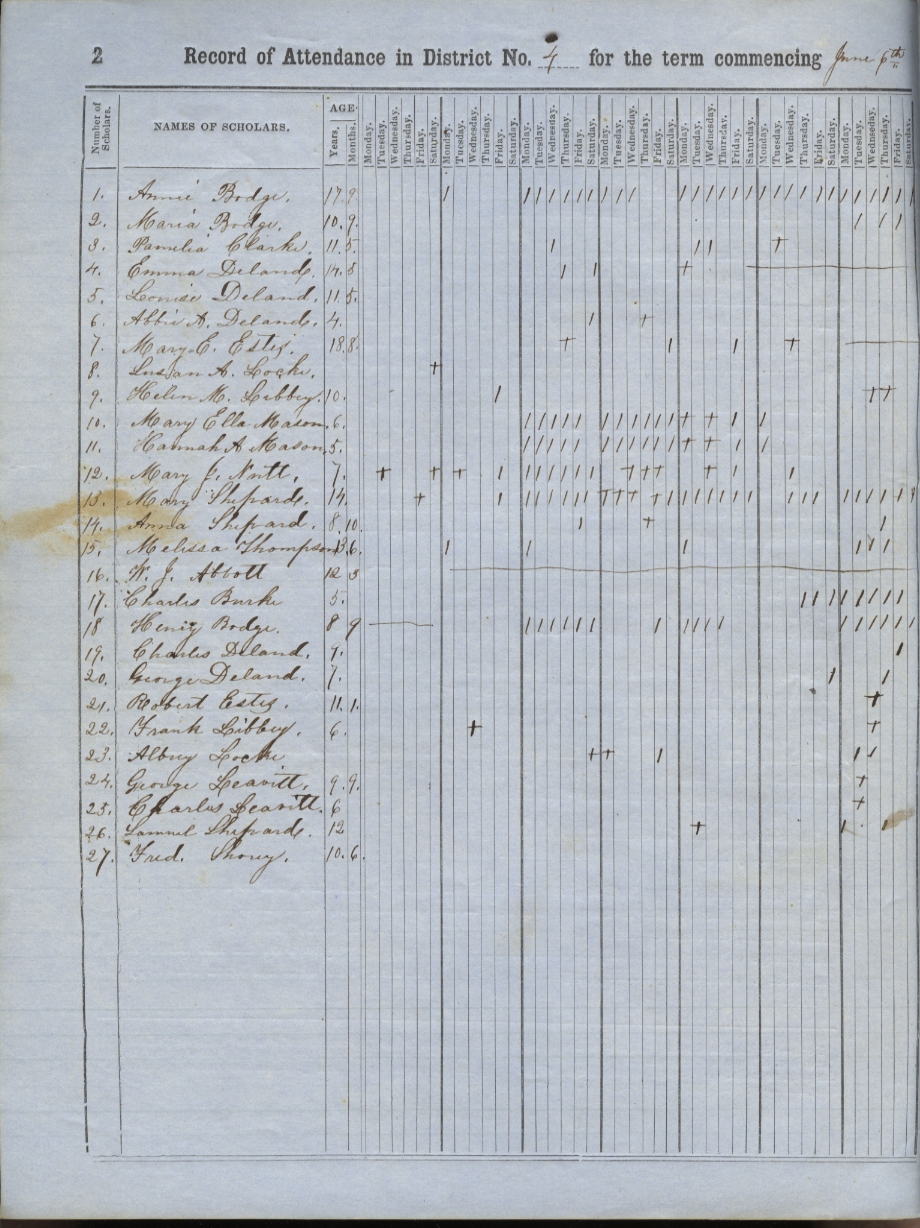 2 Record of Attendance in District No. 4 for the term commencing June 6th
Number of Scholars. NAMES OF SCHOLARS. AGE
Years. Months. Monday. Tuesday. Wednesday. Thursday. Friday. Saturday. Monday. Tuesday. Wednesday. Thursday. Friday. Saturday. Monday. Tuesday. Wednesday. Thursday. Friday. Saturday. Monday. Tuesday. Wednesday. Thursday. Friday. Saturday. Monday. Tuesday. Wednesday. Thursday. Friday. Saturday. Monday. Tuesday. Wednesday. Thursday. Friday. Saturday. Monday. Tuesday. Wednesday Thursday. Friday. Saturday.
1. Annie Bodge. 17.9.
2. Maria Bodge. 10.9.
3. Pamelia Clarke. 11.5.
4. Emma Deland. 14.5
5. Louise Deland. 11.5.
6. Abbie A. Deland. 4.
7. Mary E. Estes. 18.8.
8. Susan A. Locke.
9. Helen M. Libbey. 10.
10. Mary Ella Mason. 6.
11. Hannah A Mason. 5.
12. Mary J. Nutt. 7.
13. Mary Shepard. 14.
14. Anna Shepard. 8.10.
15. Melissa Thompson 13.6.
16. W. J. Abbott 12 3
17. Charles Burke 5.
18 Henry Bodge. 8 9
19. Charles Deland. 9.
20. George Deland. 7.
21. Robert Estes. 11.1.
22. Frank Libbey. 6.
23. Locke
24. George Leavitt. 9.9.
25. Charles Leavitt. 6
26. Samuel Shepard. 12
27. Fred. Shorey. 10.6.